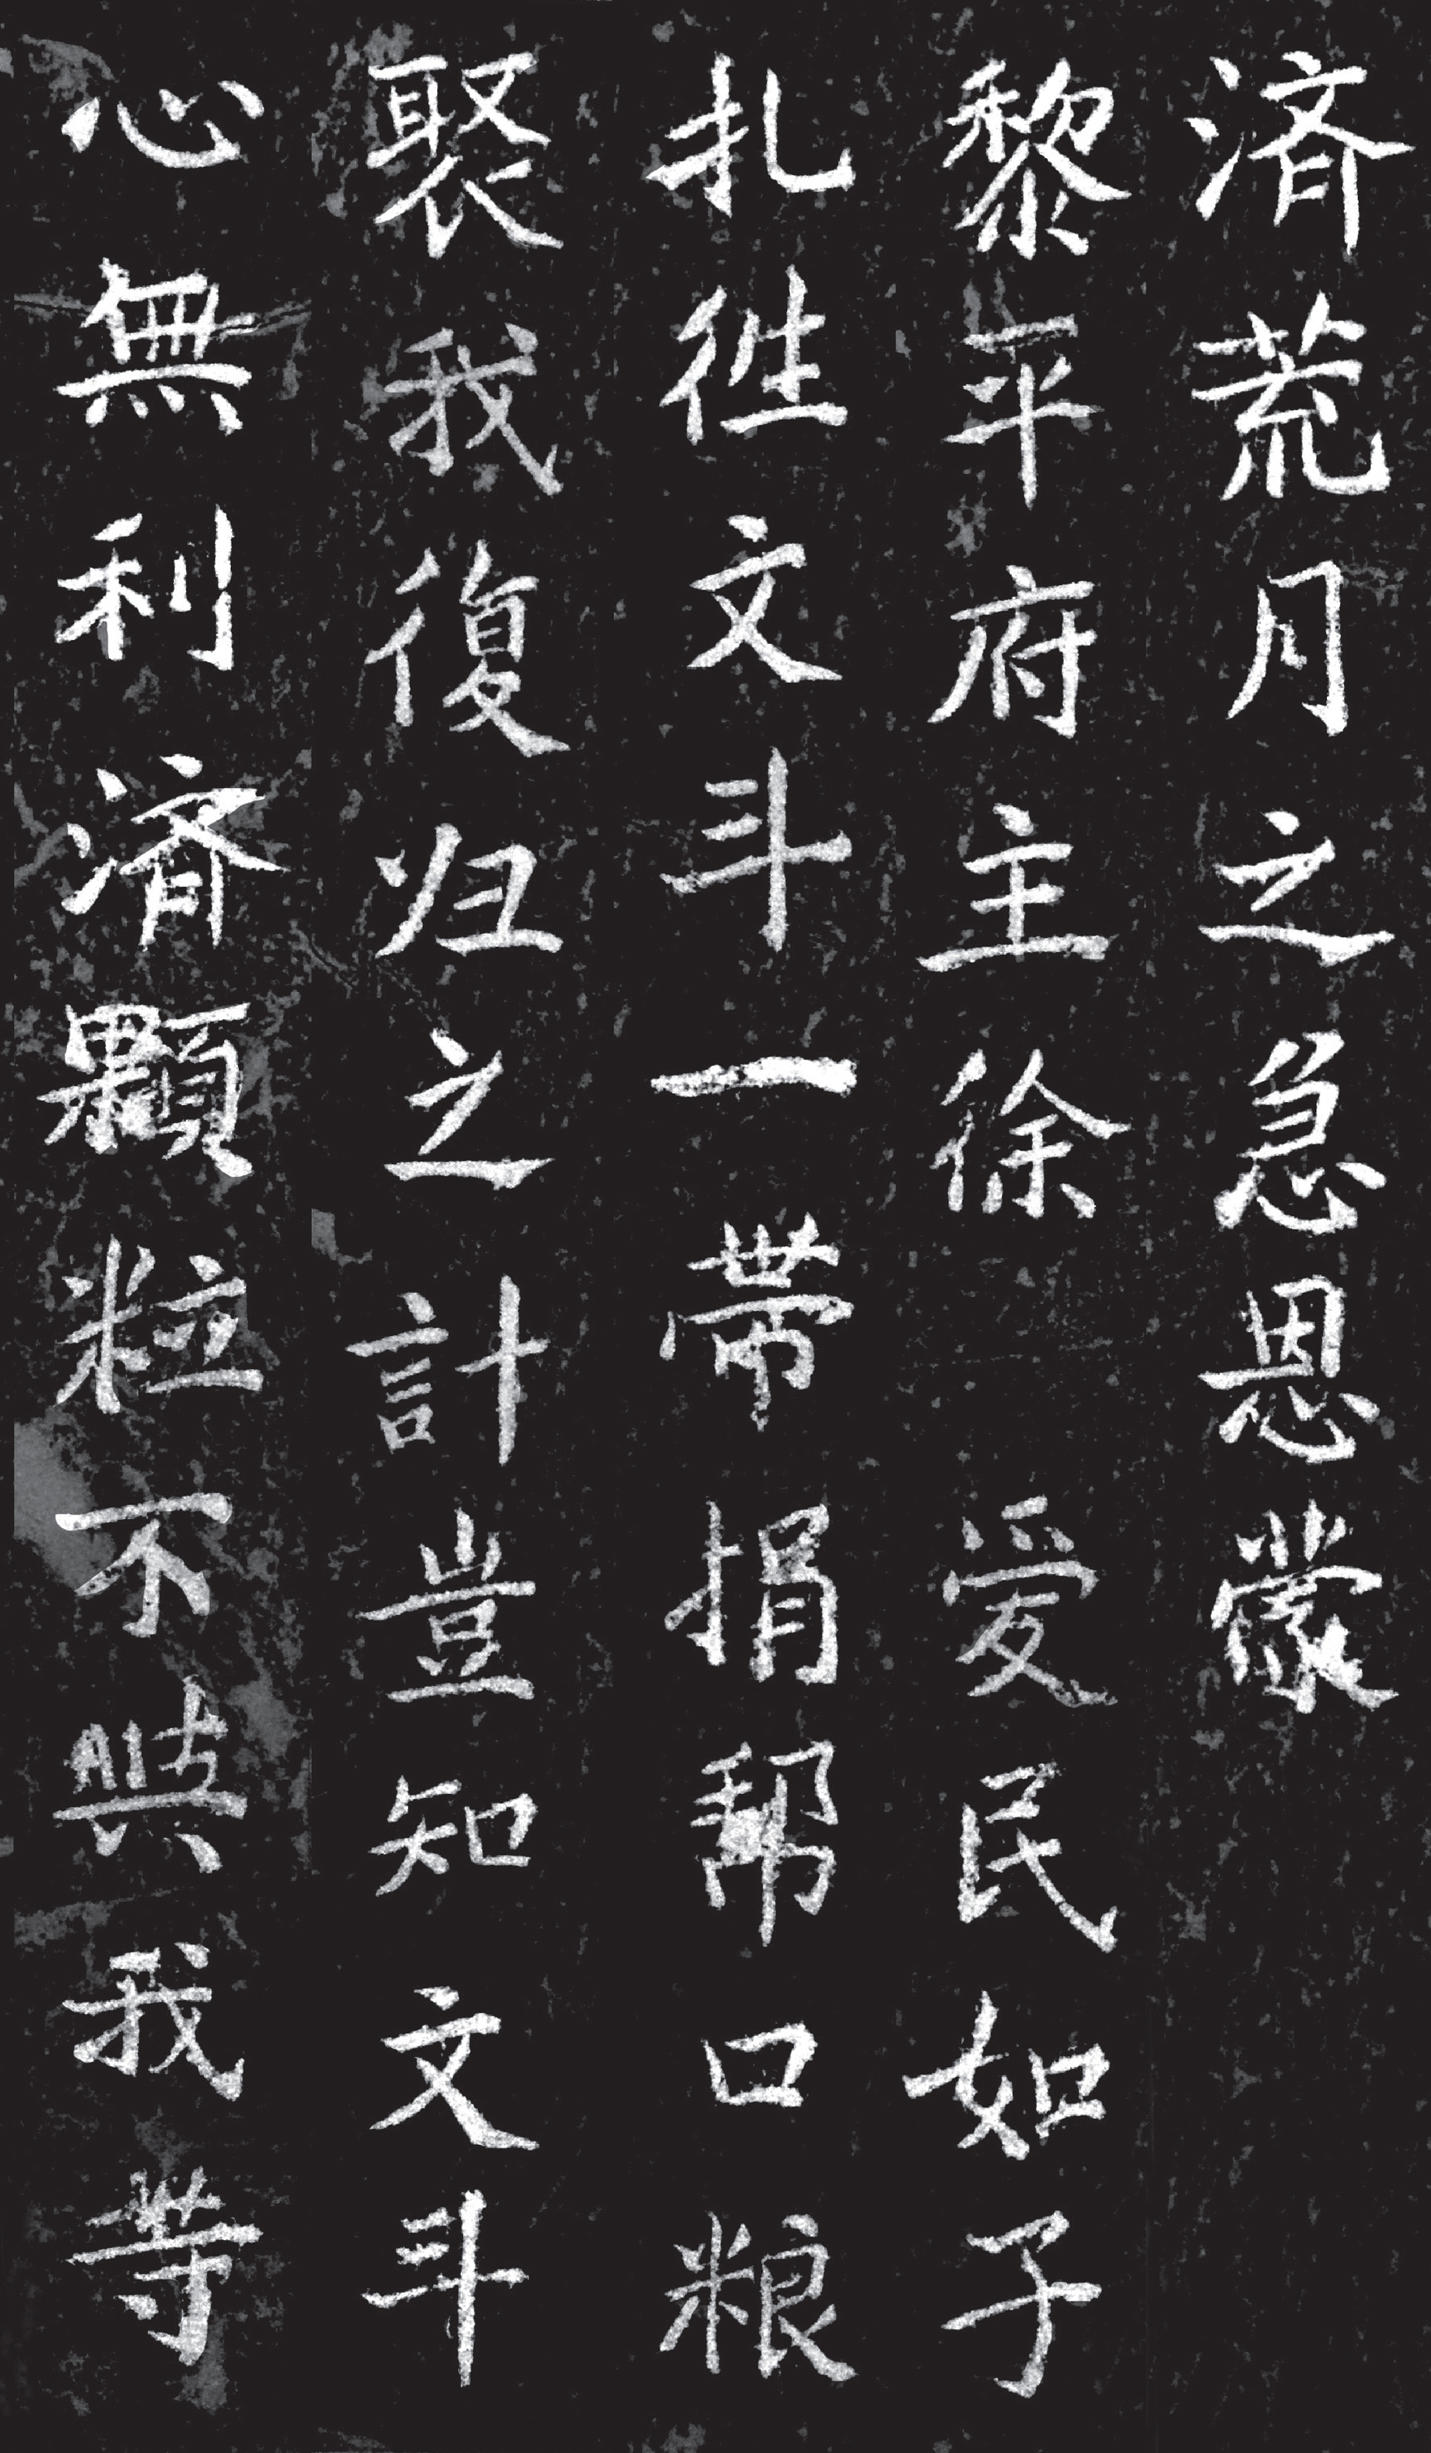 済荒月之急恩蒙
黎平府主徐 爱民如子
扎徃文斗一帶捐幇口粮
聚我復归之計豈知文斗
心無利済顆粒不與我等